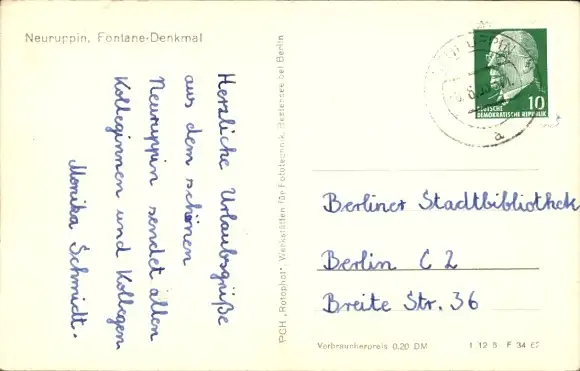 Neuruppin, Fontane-Denkmal
Herzliche Urlaubsgrüße
aus dem schönen
Neuruppin sendet allen
Kolleginnen und Kollegen
Monika Schmidt.
PGH „Rotophot“, Werkstätten für Fototechnik, Bestensee bei Berlin
10
DEUTSCHE
DEMOKRATISCHE REPUBLIK
a
Berliner Stadtbibliothek
Berlin C 2
Breite Str. 36
Verbraucherpreis 0,20 DM
1 12 8 F 34 62